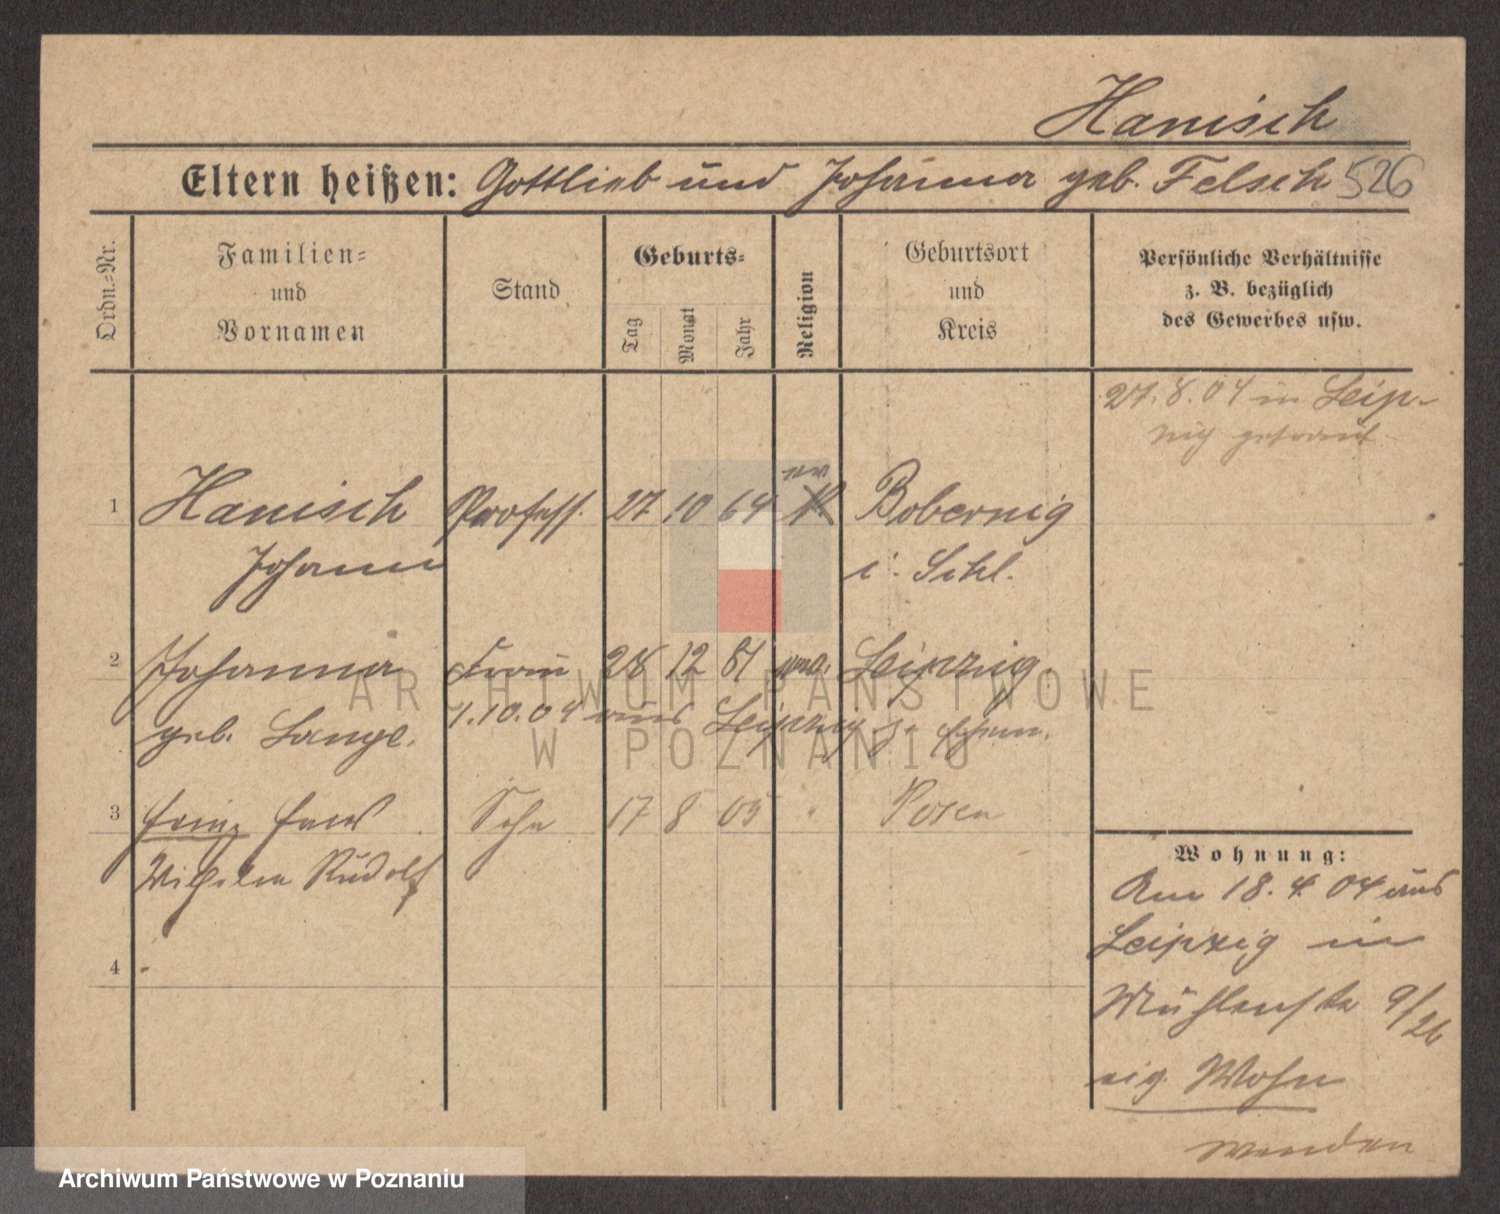 Hanisch
Eltern heißen: Gottlieb und Johanna geb. Felsch 526
Ordn.=Nr.
Familien=
und
Vornamen
Stand
Geburts=
Tag
Monat
Jahr
Religion
Geburtsort
und
Kreis
Persönliche Verhältnisse
z. B. bezüglich
des Gewerbes usw.
27.8.04 in Leip-
zig getraut
1 Hanisch Profess. 27 10 64 ev Bobernig
Johann i. Schl.
2 Johanna Frau 28 12 81 Leipzig.
geb. Lange. 1.10.04 aus Leipzig z.
3 Franz
Wilhelm Rudolf
Sohn 17 8 05 " Posen
4
Wohnung:
Am 18.4.04 aus
Leipzig in
Mühlenstr 9/26
eig. Wohn
wenden
ARCHIWUM PAŃSTWOWE
W POZNANIU
Archiwum Państwowe w Poznaniu